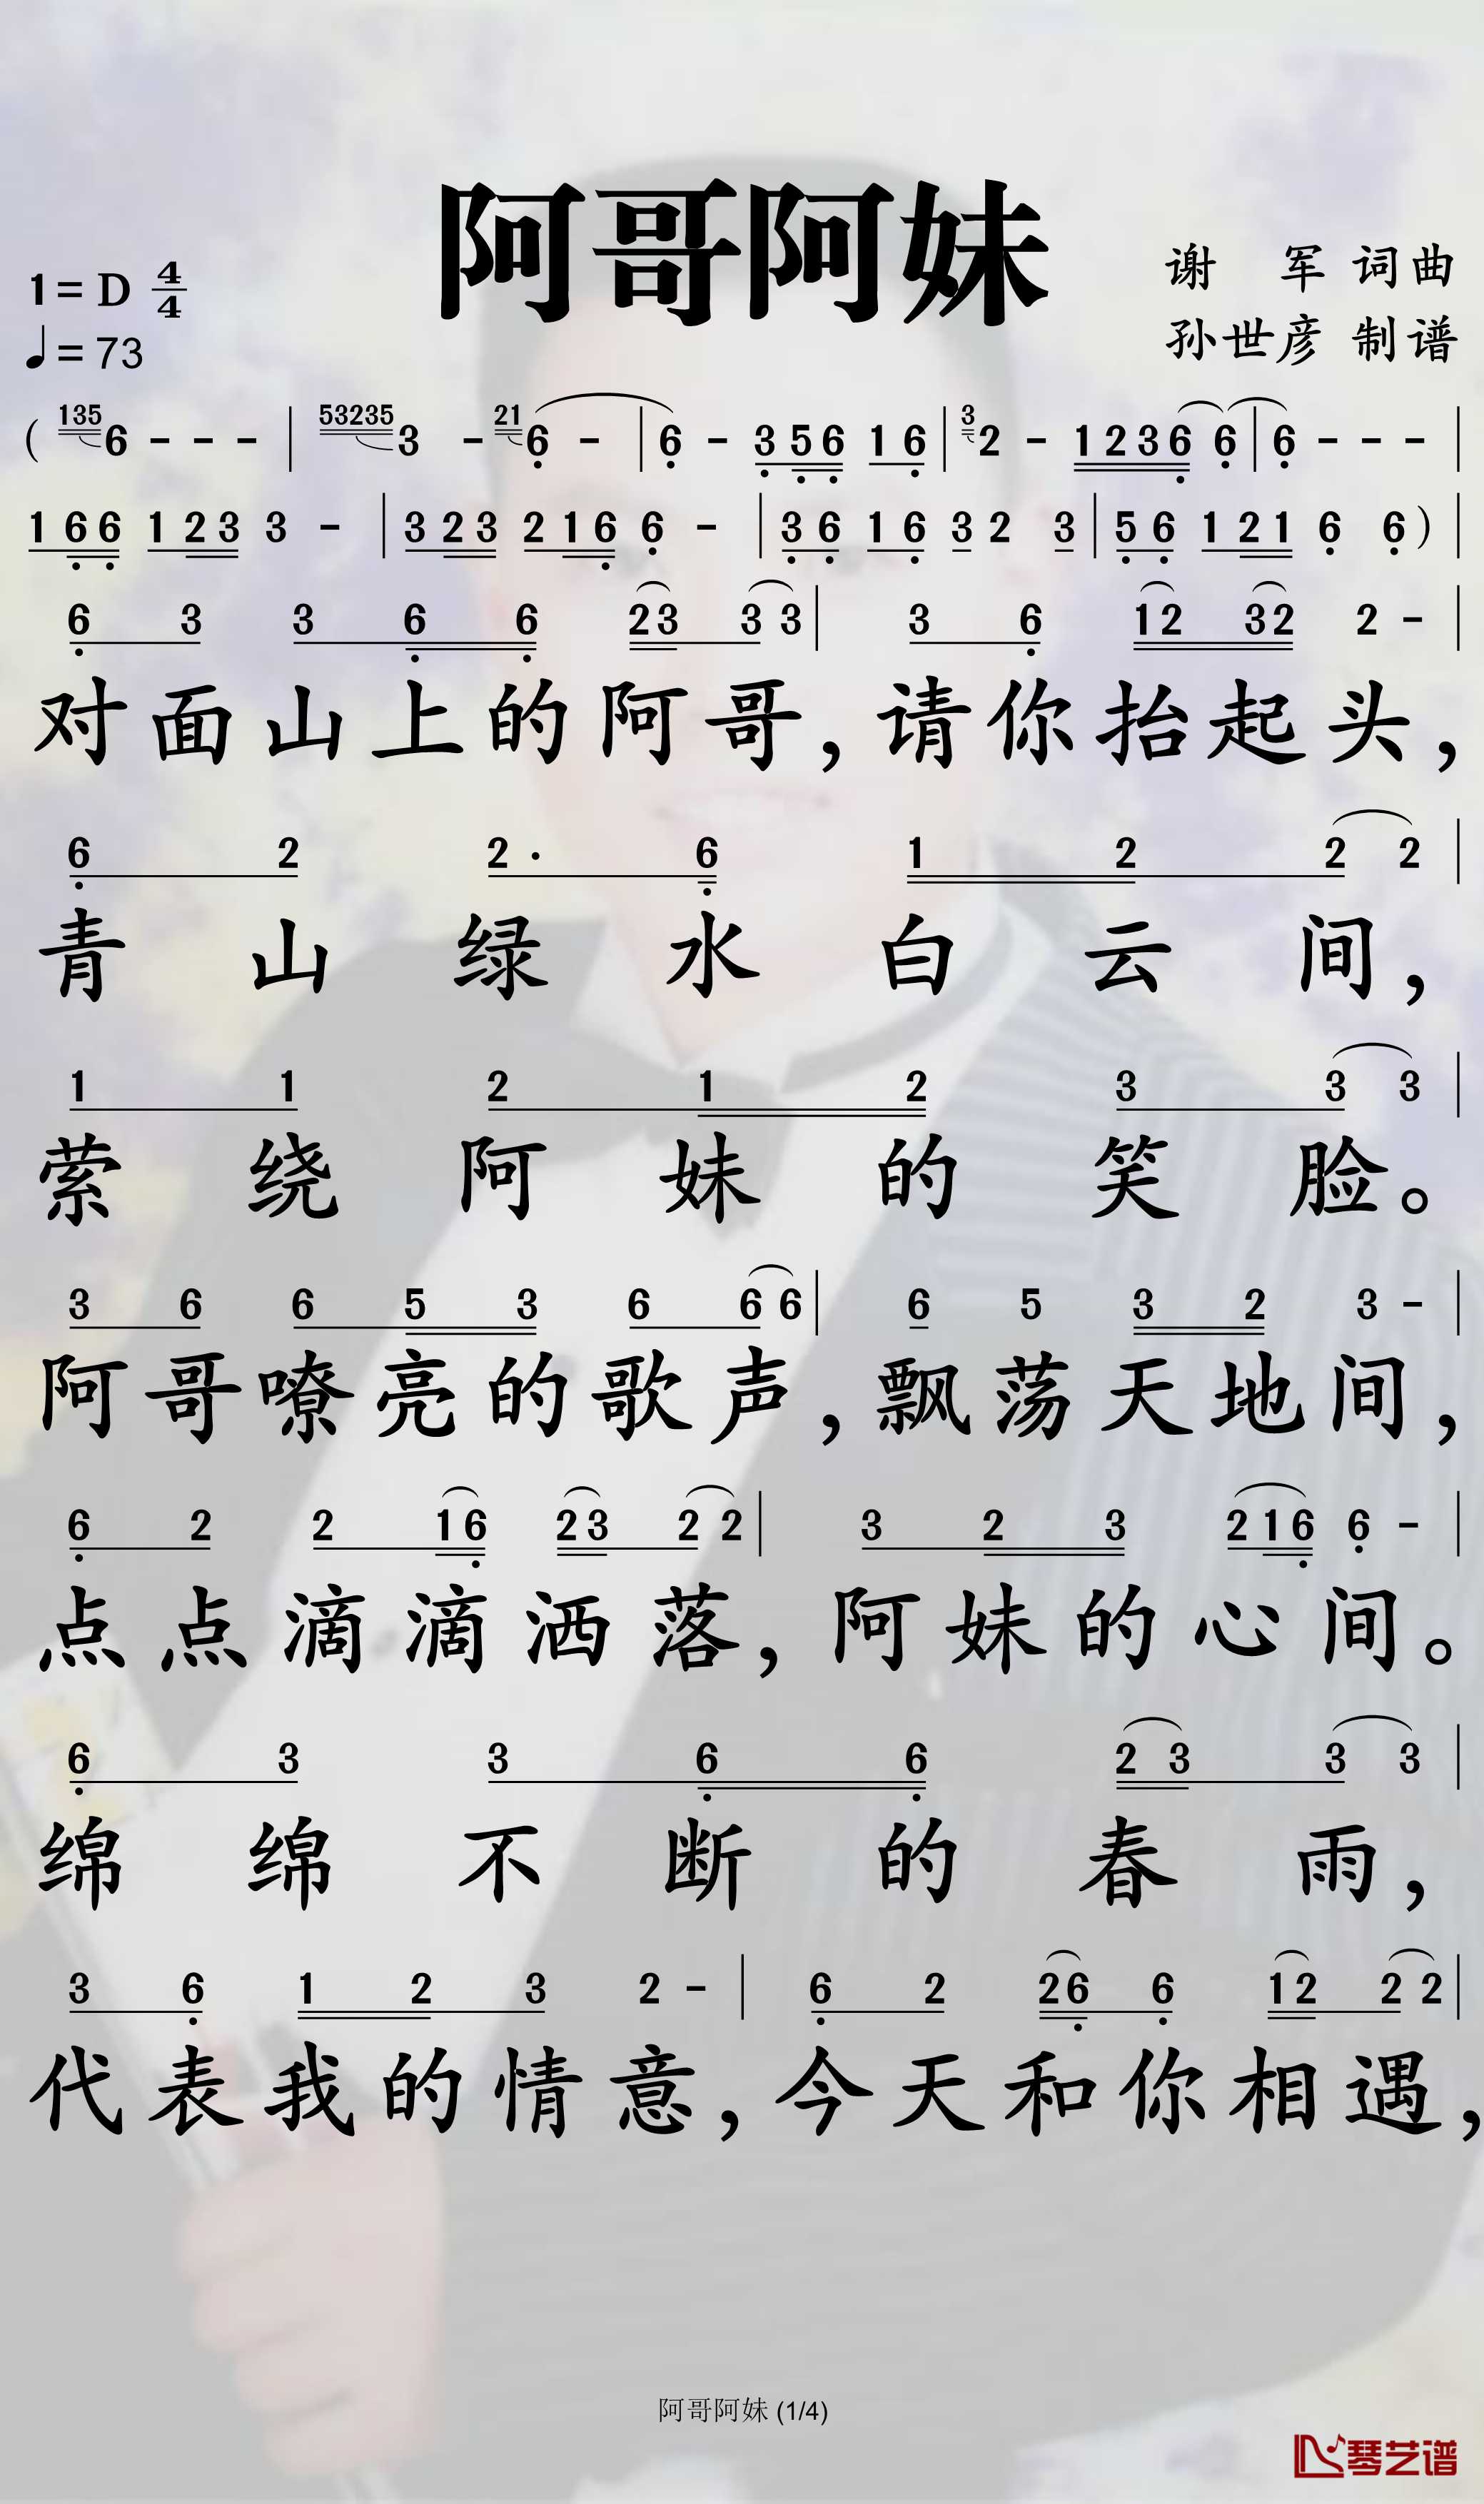 阿哥阿妹
谢 军 词曲
1= D 4/4
孙世彦 制谱
♩= 73
( 135 6 - - - | 53235 3 - 21 6 - | 6 - 3 5 6 1 6 | 3 2 - 1 2 3 6 6 | 6 - - - |
1 6 6 1 2 3 3 - | 3 2 3 2 1 6 6 - | 3 6 1 6 3 2 3 | 5 6 1 2 1 6 6 ) |
6 3 3 6 6 2 3 3 3 | 3 6 1 2 3 2 2 - |
对面山上的阿哥，请你抬起头，
6 2 2 · 6 1 2 2 2 |
青山绿水白云间，
1 1 2 1 2 3 3 3 |
萦绕阿妹的笑脸。
3 6 6 5 3 6 6 6 | 6 5 3 2 3 - |
阿哥嘹亮的歌声，飘荡天地间，
6 2 2 1 6 2 3 2 2 | 3 2 3 2 1 6 6 - |
点点滴滴洒落，阿妹的心间。
6 3 3 6 6 2 3 3 3 |
绵绵不断的春雨，
3 6 1 2 3 2 - | 6 2 2 6 6 1 2 2 2 |
代表我的情意，今天和你相遇，
阿哥阿妹 (1/4)
琴艺谱